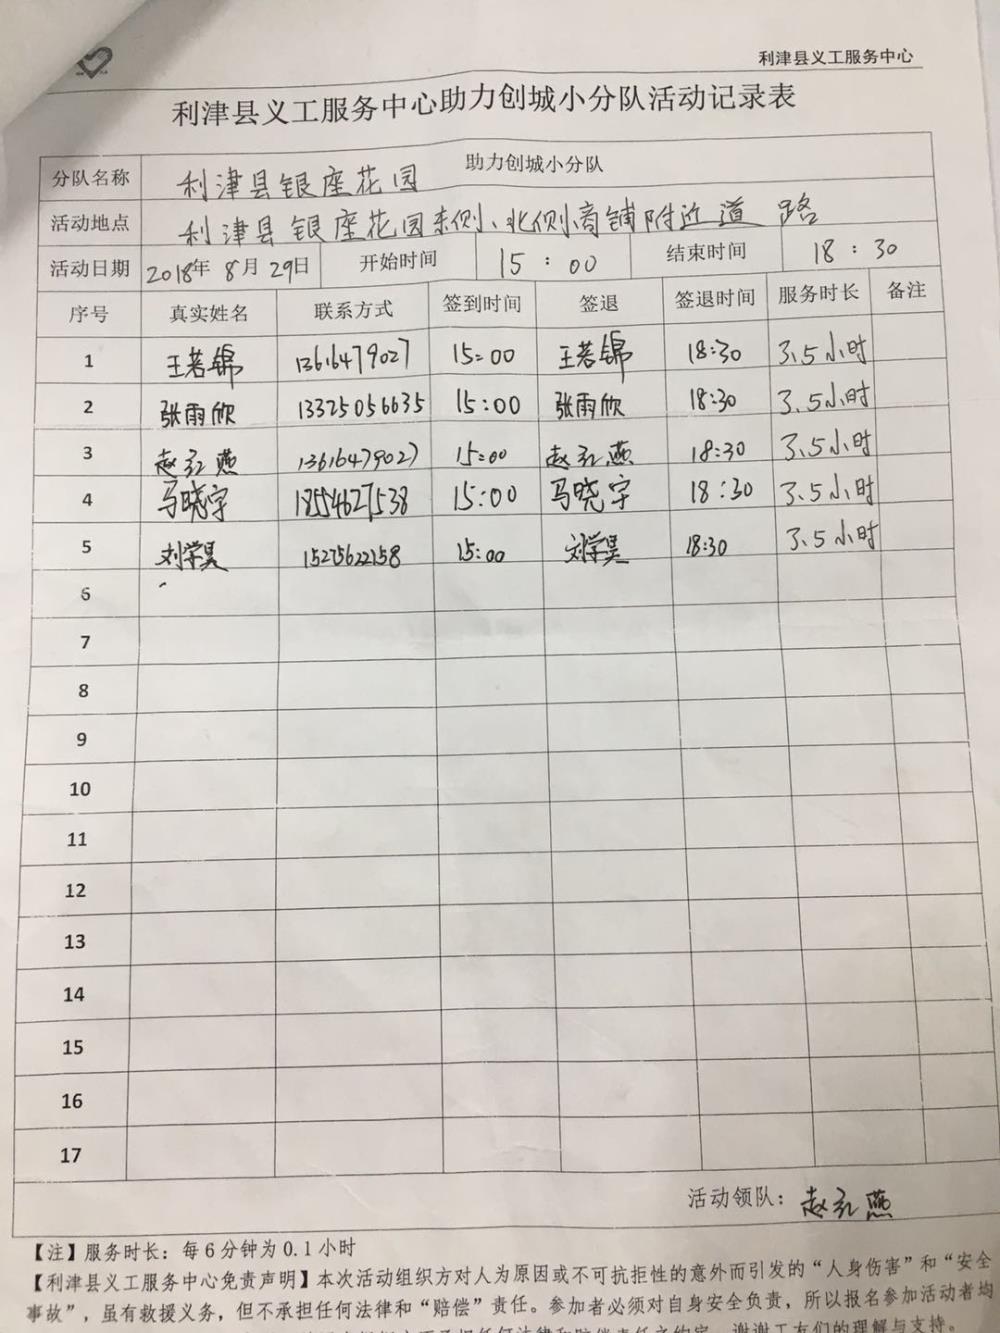 利津县义工服务中心
利津县义工服务中心助力创城小分队活动记录表
分队名称 利津县银座花园 助力创城小分队
活动地点 利津县银座花园东侧、北侧商铺附近道路
活动日期 2018年8月29日 开始时间 15:00 结束时间 18:30
序号 真实姓名 联系方式 签到时间 签退 签退时间 服务时长 备注
1 王若锦 13616479027 15:00 王若锦 18:30 3.5小时
2 张雨欣 13325056635 15:00 张雨欣 18:30 3.5小时
3 赵红燕 13616479027 15:00 赵红燕 18:30 3.5小时
4 马晓宇 18554627538 15:00 马晓宇 18:30 3.5小时
5 刘学昊 15275622158 15:00 刘学昊 18:30 3.5小时
6
7
8
9
10
11
12
13
14
15
16
17
活动领队：赵红燕
【注】服务时长：每6分钟为0.1小时
【利津县义工服务中心免责声明】本次活动组织方对人为原因或不可抗拒性的意外而引发的“人身伤害”和“安全
事故”，虽有救援义务，但不承担任何法律和“赔偿”责任。参加者必须对自身安全负责，所以报名参加活动者均
谢谢义工友们的理解与支持。